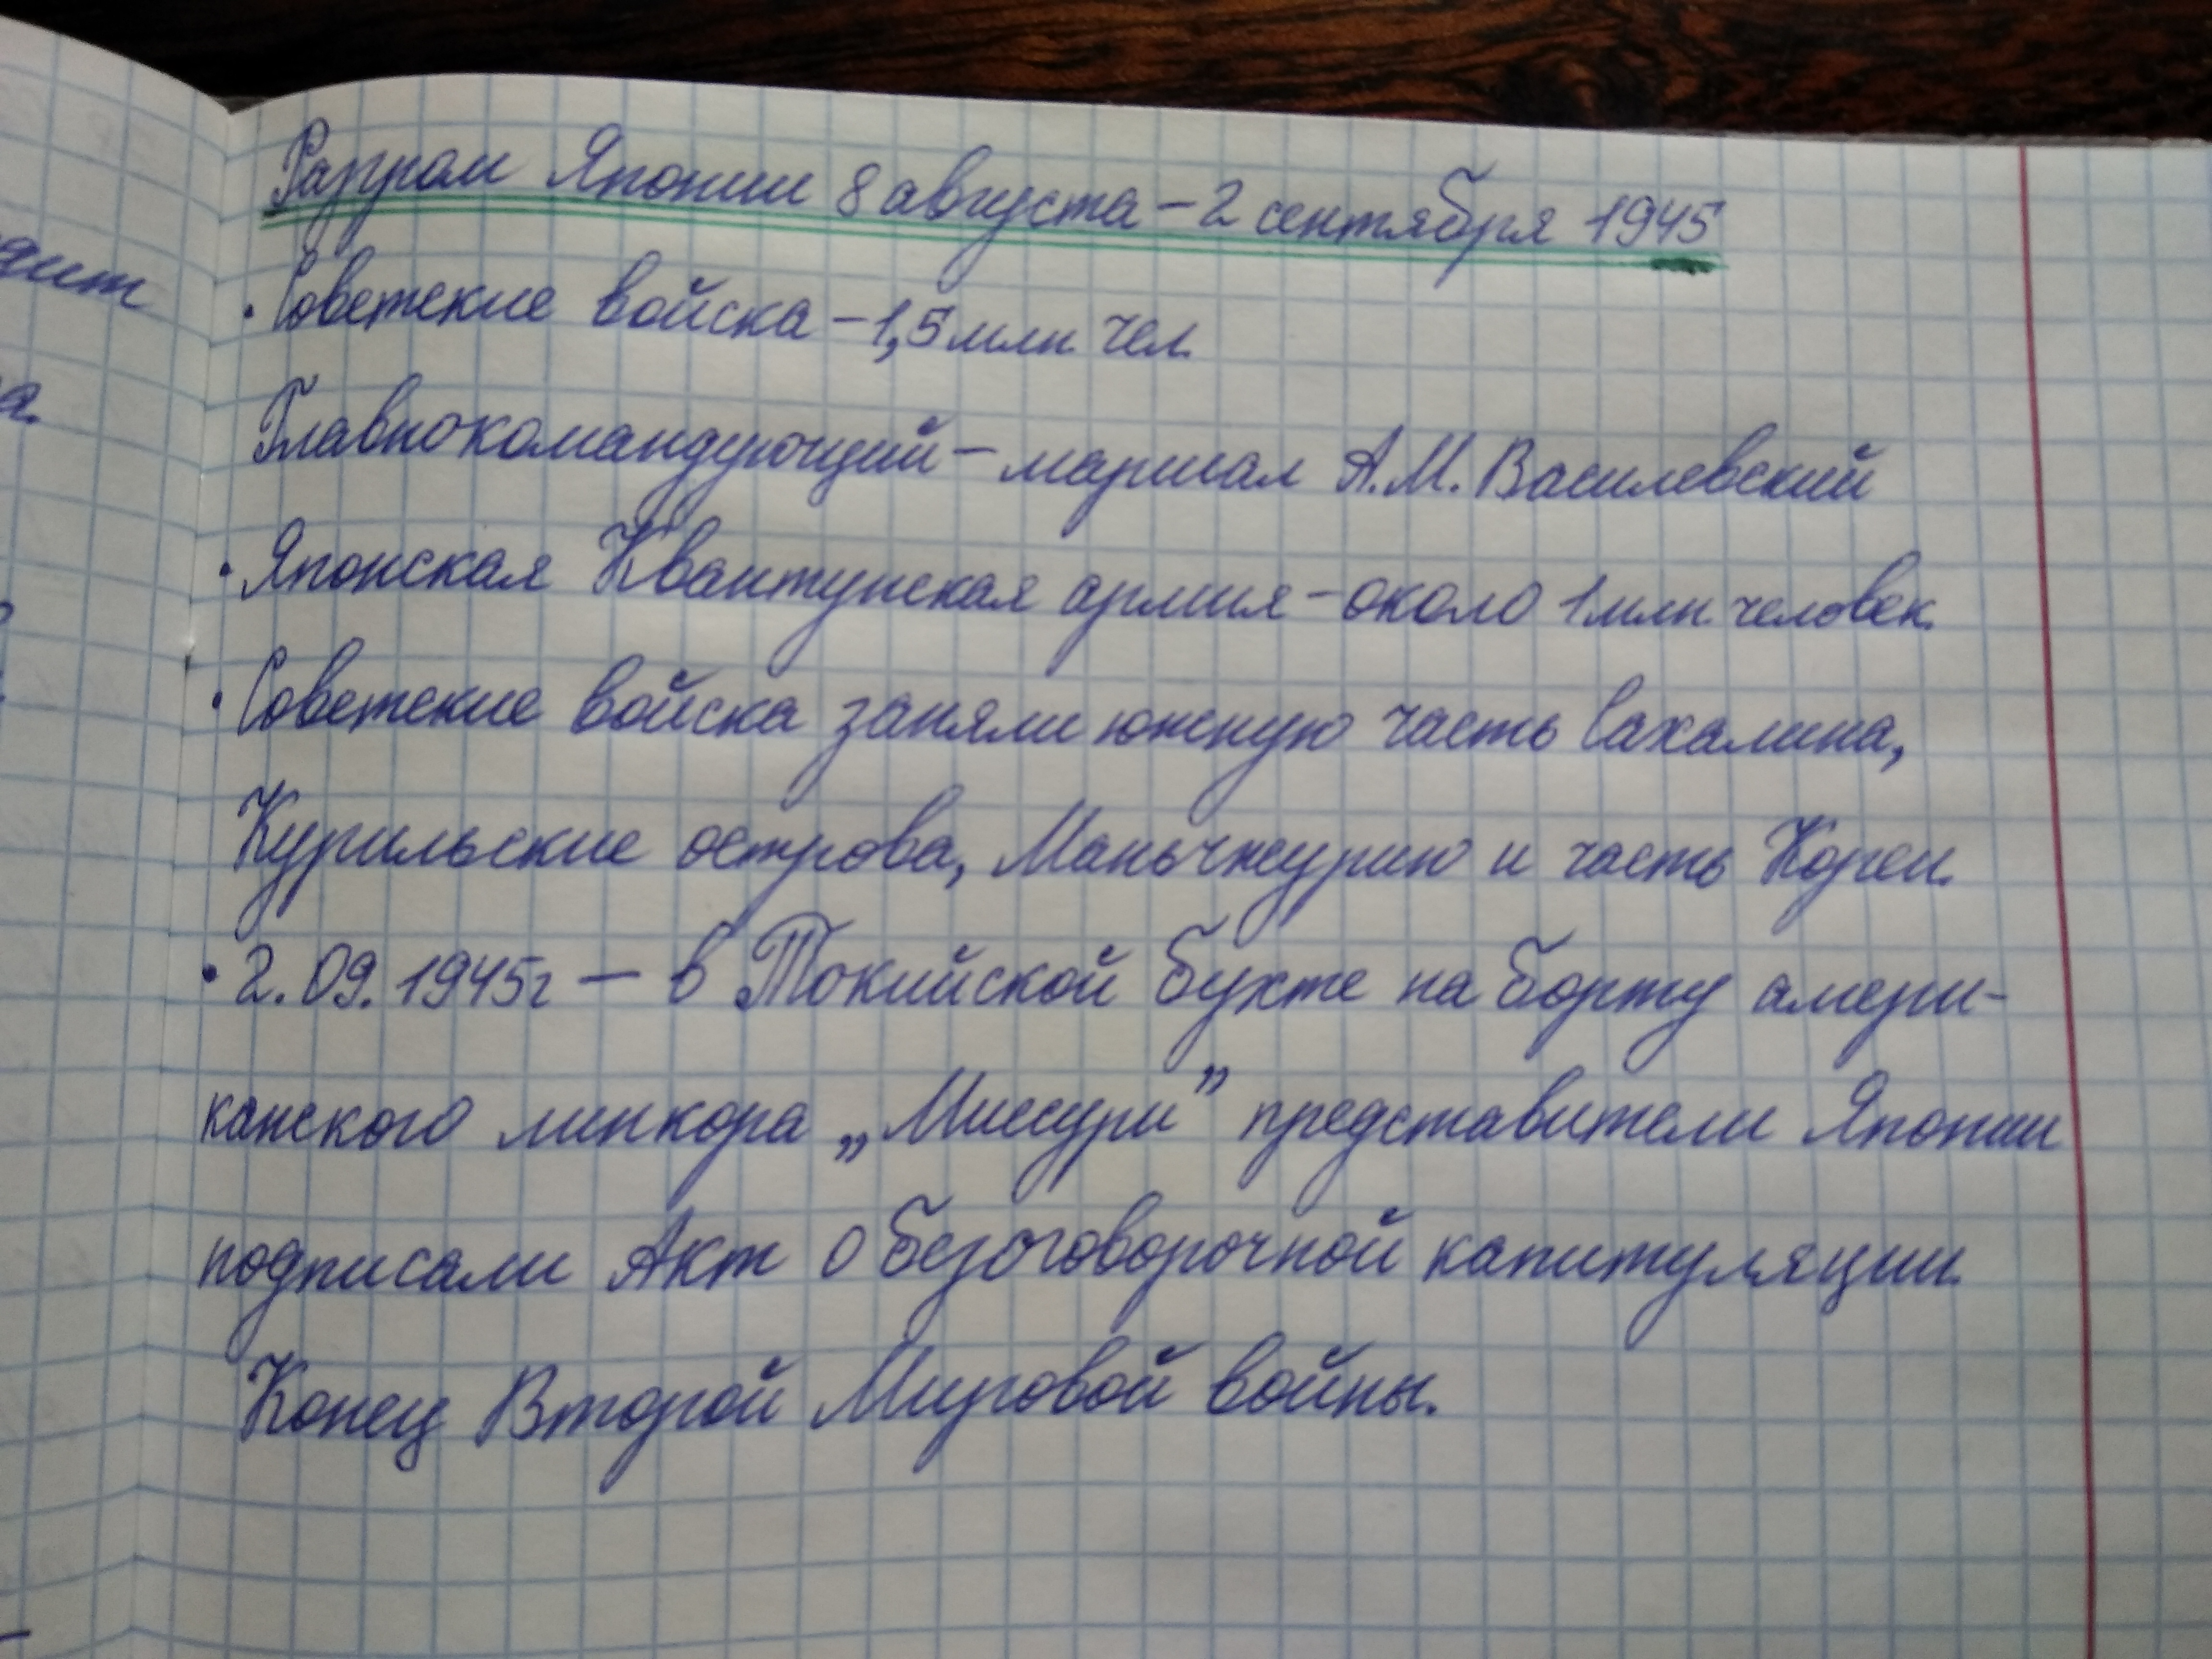 Разгром Японии 8 августа – 2 сентября 1945
· Советские войска – 1,5 млн. чел.
Главнокомандующий – маршал А.М. Василевский
· Японская Квантунская армия – около 1 млн. человек.
· Советские войска заняли южную часть Сахалина,
Курильские острова, Маньчжурию и часть Кореи.
· 2.09.1945г – в Токийской бухте на борту амери-
канского линкора „Миссури” представители Японии
подписали Акт о безоговорочной капитуляции.
Конец Второй Мировой войны.